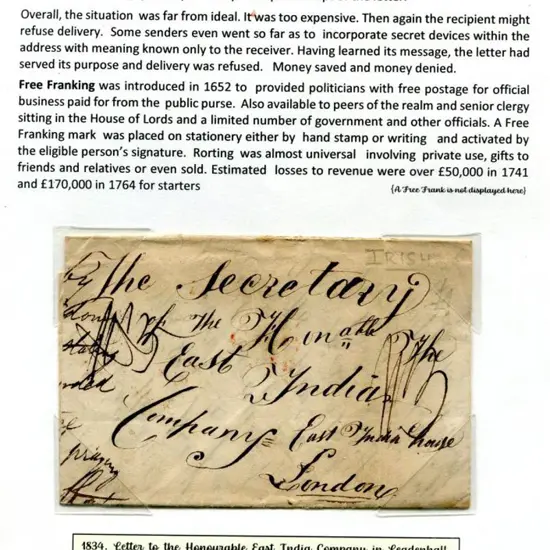 Overall, the situation was far from ideal. It was too expensive. Then again the recipient might
refuse delivery. Some senders even went so far as to incorporate secret devices within the
address with meaning known only to the receiver. Having learned its message, the letter had
served its purpose and delivery was refused. Money saved and money denied.
Free Franking was introduced in 1652 to provided politicians with free postage for official
business paid for from the public purse. Also available to peers of the realm and senior clergy
sitting in the House of Lords and a limited number of government and other officials. A Free
Franking mark was placed on stationery either by hand stamp or writing and activated by
the eligible person's signature. Rorting was almost universal involving private use, gifts to
friends and relatives or even sold. Estimated losses to revenue were over £50,000 in 1741
and £170,000 in 1764 for starters
(A Free Frank is not displayed here)
IRISH
The Secretary
of The Honable The
East India
Company East India house
London
praying
that
1834. Letter to the Honourable East India Company in Leadenhall